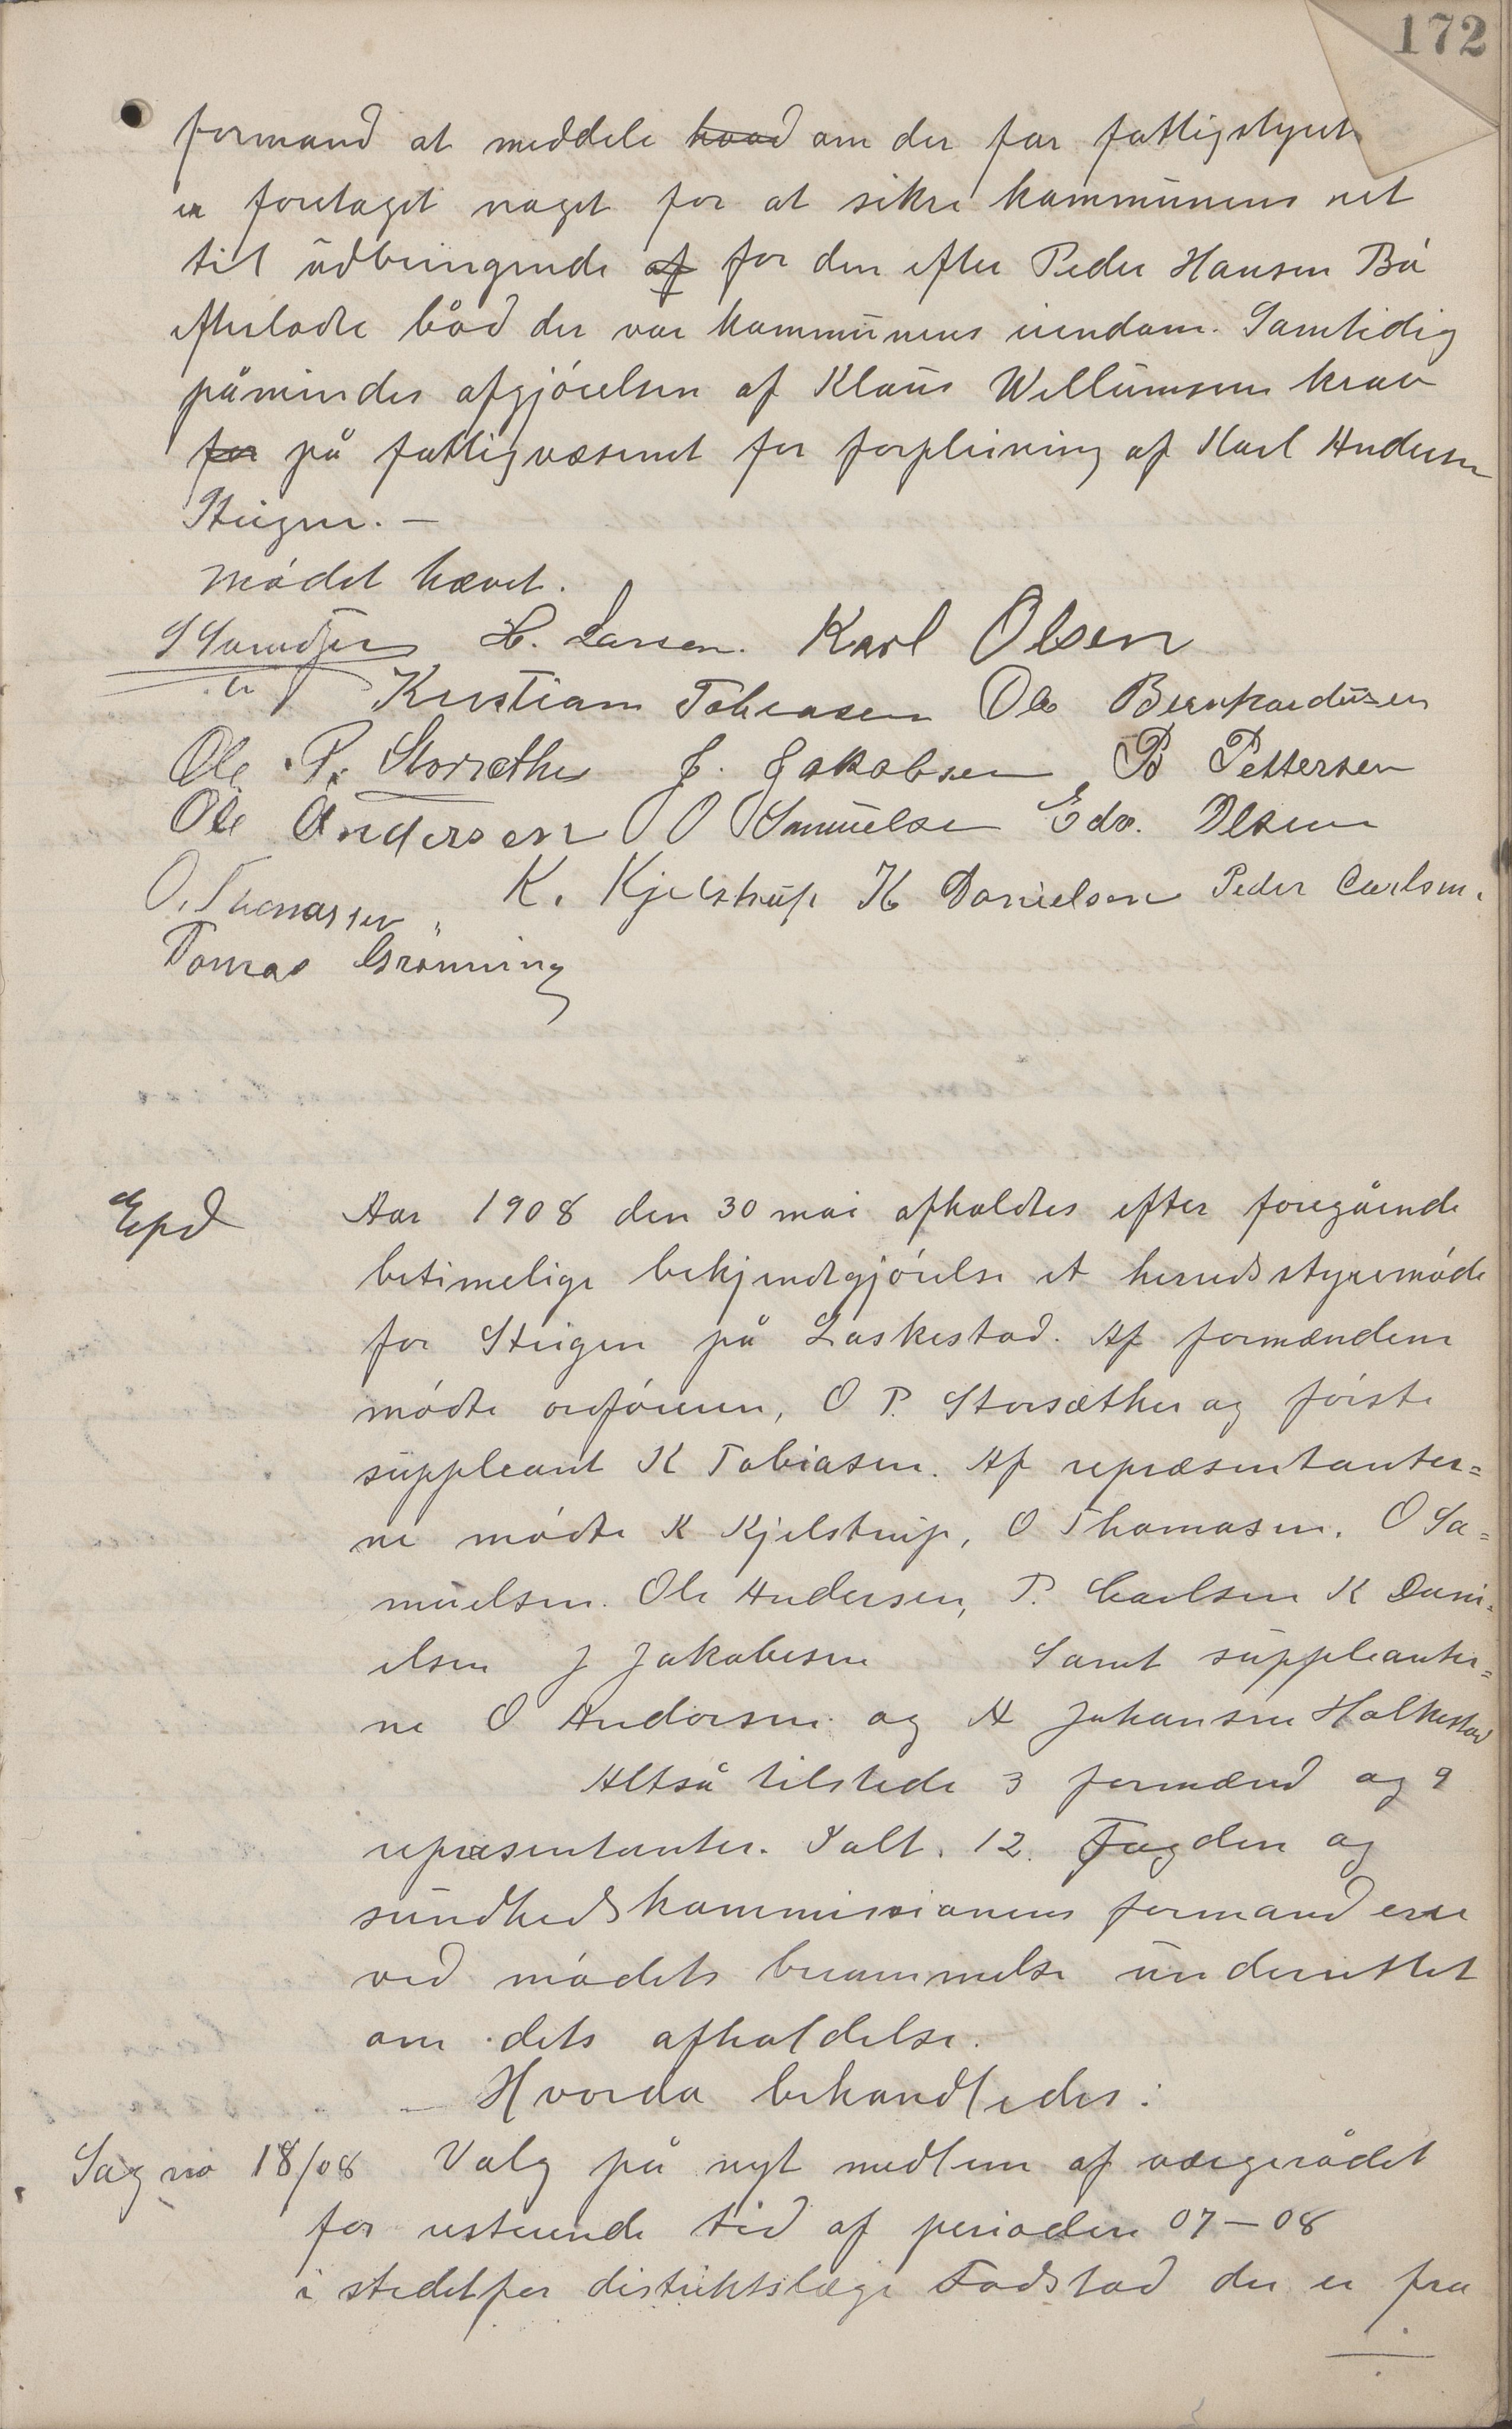 172
formand at meddele hvad om der før fattigstyret
er foretaget noget for at sikre kommunens ret
til udbringende af for den efter Peder Hansen Bø
efterladte båd der var kommunens eiendom. Samtidig
påmindes afgjørelsen af Klaus Willumsens krav
for på fattigvæsenet for forpleining af Karl Andersen
Steigen. —
Mødet hævet.
H. Larsen. Karl Olsen
Kristian Tobiasen Ole Bernhardusen
Ole P. Storsæther J. Jakobsen P Pettersen
Ole Andersen O Samuelsen Edv. Olsen
O. Thomassen, K. Kjelstrup K Danielsen Peder Carlsen.
Tomas Grønning
Expd Aar 1908 den 30 mai afholdtes efter foregående
betimelige bekjendtgjørelse et herredsstyremøde
for Steigen på Laskestad. Af formændene
mødte ordføreren, O P. Storsæther og første
suppleant K Tobiasen. Af repræsentanter=
ne mødte K Kjelstrup, O Thomasen, O Sa=
muelsen. Ole Andersen, P. Carlsen K Dani=
elsen J Jakobsen Samt suppleanter=
ne O Andorsen og A Johansen Holkestad
Altså tilstede 3 formænd og 9
repræsentanter. Ialt. 12. Fogden og
sundhedskommissionens formand ere
ved mødets berammelse underrettet
om dets afholdelse.
— Hvorda behandledes:
Sag no 18/08 Valg på nyt medlem af værgerådet
for resterende tid af perioden 07—08
i stedetfor distriktslæge Fodstad der er fra